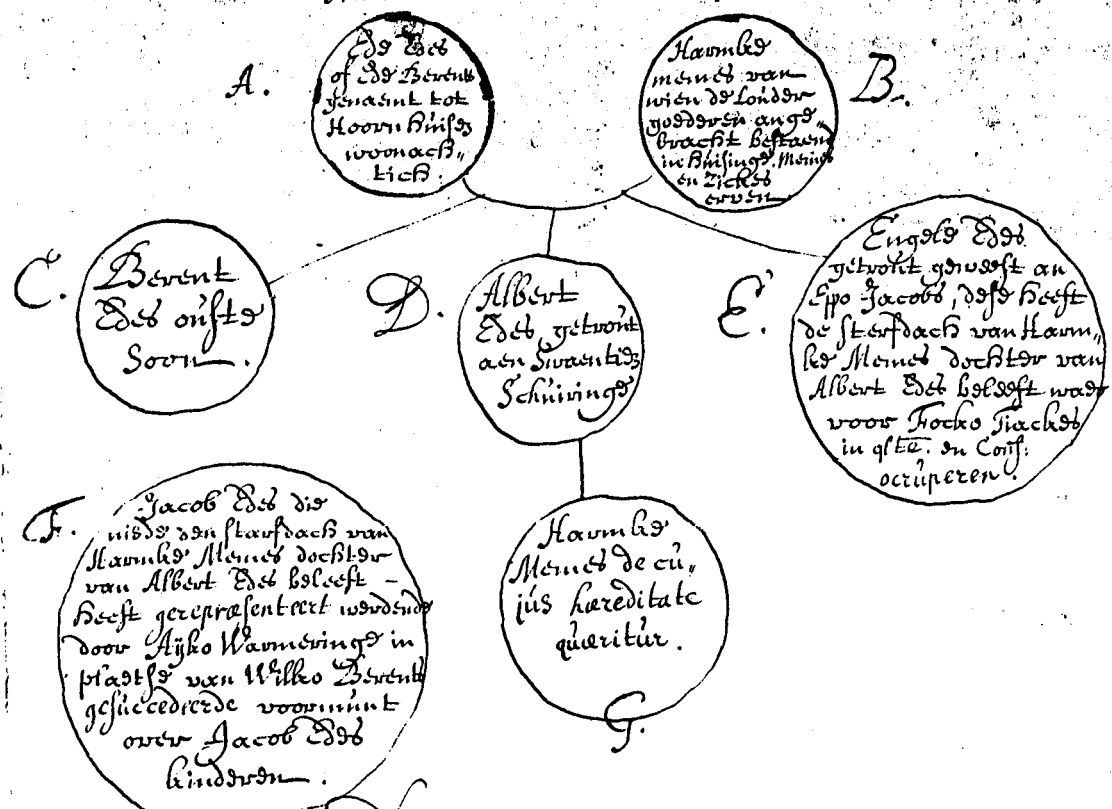 A.
Ede Edes
of Ede Berents
genaemt tot
Hoornhuisen
woonach„
tich.
B.
Harmke
memes van
wien de Louder
goederen ange„
bracht bestaen
in huisinge. Meines
en Zickes
erven
C.
Berent
Edes outste
Soon.
D.
Albert
Edes, getrout
aen Swaentien
Schuiringe
E.
Engele Edes
getrout geweest an
Eppo Jacobs, dese heeft
de sterfdach van Harm„
ke Memes dochter van
Albert Edes beleeft waer
voor Focko Tiackes
in qlte. en Cons:
occuperen.
F.
Jacob Edes die
mede den starfdach van
Harmke Memes dochter
van Albert Edes beleeft –
heeft gerepræsenteert werdende
door Aijko Warmeringe in
plaetse van Wilko Berents
gesuccedeerde voormunt
over Jacob Edes
kinderen.
Harmke
Memes de cu„
jus hæreditate
quæritur.
G.